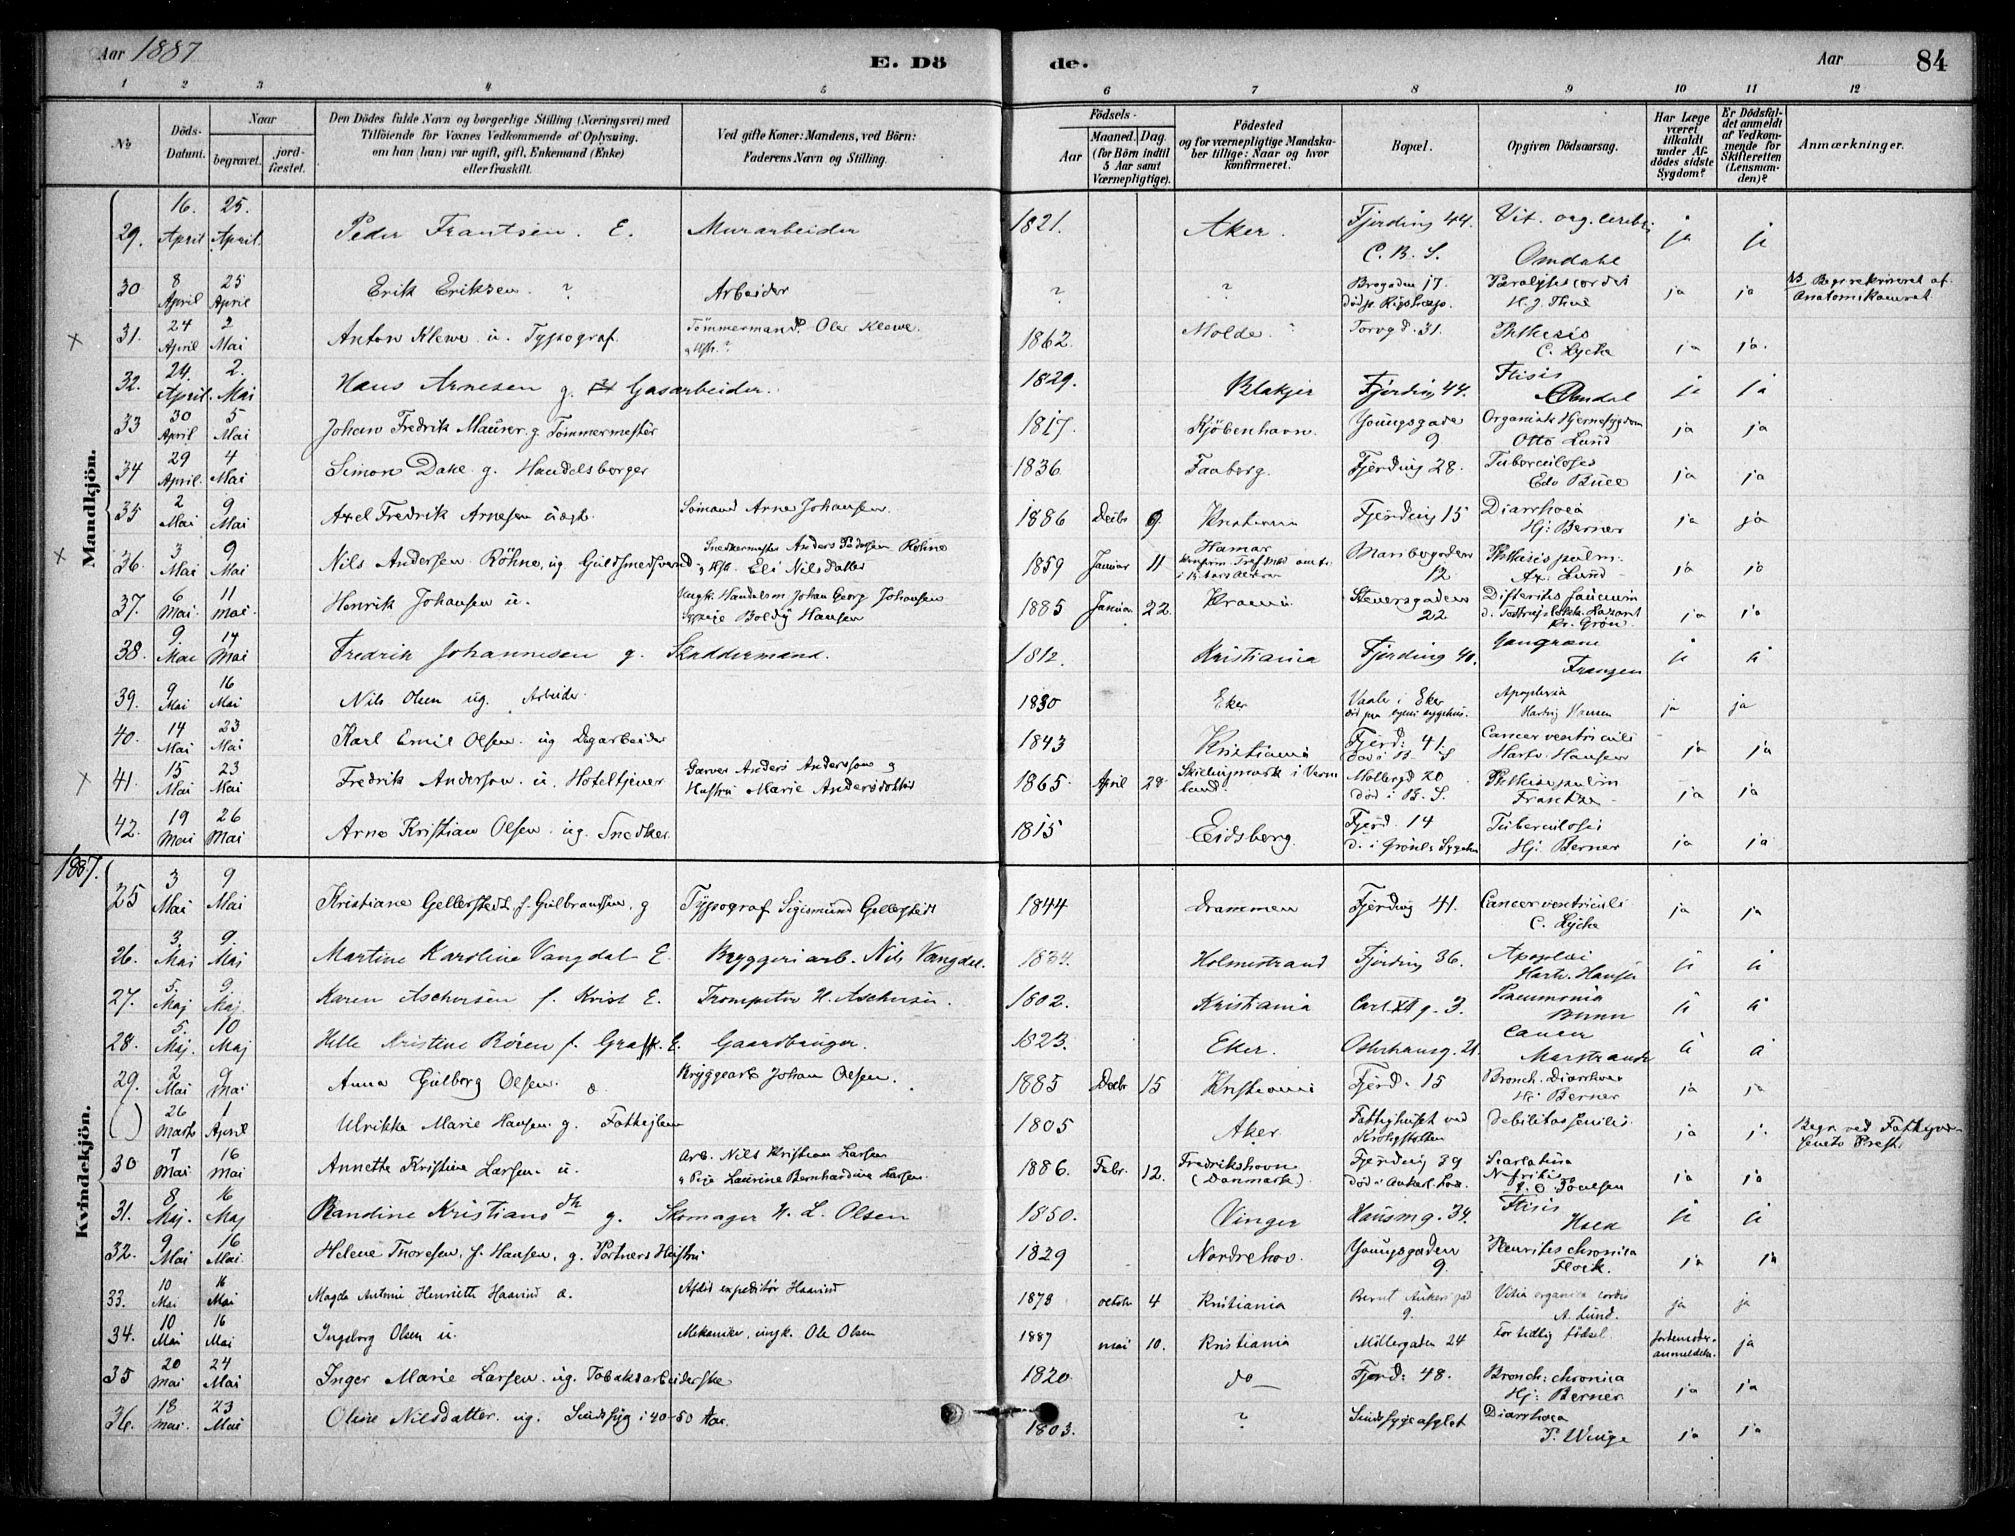 Aar 1887
E. Dö
de.
Aar
84
1 2 3 4 5 6 7 8 9 10 11 12
№
Döds-Datum.
Naar
begravet.
jordfæstet.
Den Dödes fulde Navn og borgerlige Stilling (Næringsvei) med
Tilföiende for Voxnes Vedkommende af Oplysning,
om han (hun) var ugift, gift, Enkemand (Enke)
eller fraskilt.
Ved gifte Koner: Mandens, ved Börn:
Faderens Navn og Stilling.
Födsels-
Aar
Maaned. Dag.
(for Börn indtil
5 Aar samt
Værnepligtige).
Födested
og for værnepligtige Mandskaber tillige: Naar og hvor
konfirmeret.
Bopæl.
Opgiven Dödsaarsag.
Har Læge
været
tilkaldt
under Afdödes sidste
Sygdom?
Er Dödsfaldet anmeldt
af Vedkommende for
Skifteretten
(Lensmanden)?
Anmærkninger.
Mandkjön.
29. 16. April 25. April. Peder Frantsen. E. Murarbeider 1821. Aker. Fjerding 44. C. B. S. Vit. org. cerebri Omdahl ja ja
30 8 April 25 April Erik Eriksen ? Arbeider ? ? Brogaden 17 Paralysis cordis ja ja
31. 24 April 2 Mai Anton Klewe u. Typograf. Tömmermand Ole Klewe 1862. Molde Torvgd. 31. Phthisis C. Lycke ja ja.
32. 24. April. 2. Mai Hans Arnesen g. Gasarbeider. 1829. Blakjer Fjerding 44. Ftisis Omdal ja ja
33 30 April 5 Mai Johan Fredrik Maurer. g. Tömmermester 1817. Kjöbenhavn. Youngsgade 9 Organisk Hjernesygdom Otto Lund ja ja
34 29 April. 4 Mai Simon Dahl g. Handelsborger 1836. Faaberg. Fjerding 28. Tuberculosis Edv Bull ja ja
35 2 Mai 9 Mai Axel Fredrik Arnesen uægt. Sömand Arne Johansen 1886 Decbr 9. Kristiania Fjerding 15 Diarrhoea Hj: Berner ja ja
36. 3 Mai 9 Mai Nils Andersen Röhne, ug Guldsmedsvend Snedkermester Anders Pedersen Röhne Eli Nilsdatter 1859 Januar 11 Hamar 12 Phthisis pulm. Ax. Lund ja ja
37. 6 Mai. 11 mai. Henrik Johansen u. Handelsm Johan Georg Johansen Hansen 1885 Januar 22. Krania Steensgaden 22 Difteritis faucium Dr. Grön. ja ja
38. 9. Mai 14 Mai Fredrik Johannesen g. Skaddermand. 1812. Kristiania Fjerding 40. Gangræne Franzen ja ja
39. 9 Mai 16 Mai Nils Olsen ug. Arbeider. 1830 Eker Eker Apoplexia Hartvig Hansen ja ja
40. 14 Mai 23 Mai Karl Emil Olsen. ug Dagarbeider 1843 Kristiania Fjerd: 41. Cancer ventriculi Hartv. Hansen ja ja
41. 15 Mai 23 Mai Fredrik Anderson. u. Hoteltjener Garver Anders Andersson og Hustru Marie Andersdotter 1865. April 28. Skillingmark i Vermland. Möllergd 20 död i B. S. Phthisis pulm ja ja
42. 19 Mai 26 Mai Arne Kristian Olsen. ug. Snedker. 1815 Eidsberg. Fjerd. 14 d. i Grönl. Sygehus Tuberculosis Hj: Berner ja ja
1887.
Kvindekjön.
25 3 Mai 9 Mai Kristiane Gellerstedt f. Gulbrandsen, g Typograf Sigismund Gellerstedt 1844 Drammen Fjerding 41. Cancer ventriculi C. Lycke ja ja
26. 3. Mai 9. Mai Martine Karoline Vangdal E. Bryggeriarb. Nils Vangdal. 1834. Holmestrand Fjerding 36. Apoplexi Hartv. Hansen ja ja
27. 5. Maj 9. Maj. Karen Aschersen f. Krist E. Trompeter H. Aschersen 1802. Kristiania Carl XII g. 3. Pneumonia Bunn ja ja
28. 5. Maj. 10 Maj Helle Kristine Rören f. Graff. E. Gaardbruger. 1823. Eker. Osterhausg. 21. Cancer Marstrander ja ja
29. 2 Mai 9 Mai Anna Gulborg Olsen. æ Bryggearb Johan Olsen. 1885 Decbr 15 Kristiania Fjerd. 15 Bronch. Diarrhoea Hj Berner ja ja
( ) 26 Marts 1 April Ulrikke Marie Hansen. g. Fattiglem 1805 Aker Fattighuset ved Debilitas senilis ja j. Begr. ved Fattigvæsenets Prest.
30 7 Mai 16 Mai Annette Kristine Larsen. u. Arb. Nils Kristian Larsen og Pige Laurine Bernhardine Larsen. 1886. Febr. 12. Fredrikshavn (Danmark). Fjerding 39 Scarlatina Nefritis ja ja
31. 8. Maj. 16 Maj Randine Kristiansdtr g. Skomager H. L. Olsen 1850. Vinger Hausm g. 34. Ftisis Holk ja ja
32. 9 Mai 16 Mai. Helene Thoresen, f. Hansen, g. Portners Hustru 1829 Nordrehov. Youngsgaden 9. Pleuritis chronica Flock. ja ja
33. 10 Mai 16 Mai Magda Antonie Henriette Haavind æ. Afdöd expeditör Haavind 1878 october 4 Kristiania Bernt Ankers gad 9. Vitia organica cordis A. Lund. ja ja
34. 10 Mai 16 Mai Ingeborg Olsen u. Mekaniker, ungk. Ole Olsen 1887 mai 10. Kristiania Möllergaden 24 For tidlig födsel. Jordemoder-anmeldelse. ja
35 20 Mai 24 Mai Inger Marie Larsen. ug. Tobaksarbeiderske 1820 do Fjerd: 48. Bronch: chronica Hj: Berner ja ja
36. 18 Mai. 23 Mai Oline Nilsdatter. ug. Sindssyg i 40-50 Aar. 1803. ? Sindssygeasylet Diarrhoea P. Winge ja ja